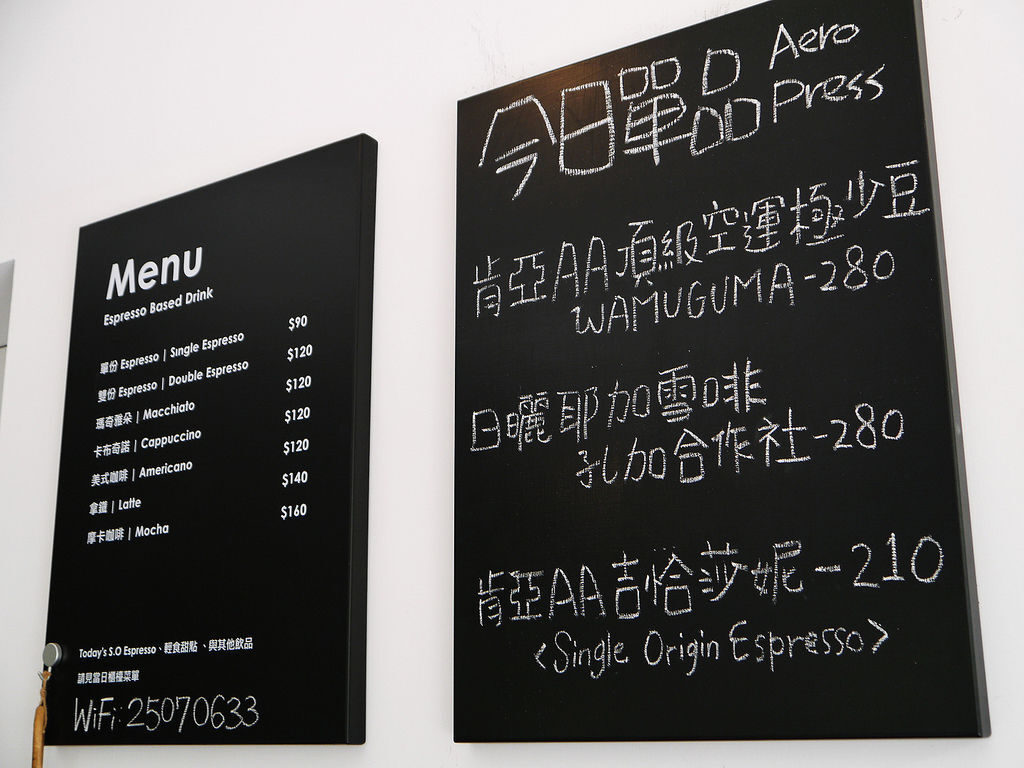 Menu
Espresso Based Drink
單份 Espresso | Single Espresso $90
雙份 Espresso | Double Espresso $120
瑪奇雅朵 | Macchiato $120
卡布奇諾 | Cappuccino $120
美式咖啡 | Americano $120
拿鐵 | Latte $140
摩卡咖啡 | Mocha $160
Today's S.O Espresso、輕食甜點、與其他飲品
請見當日櫃檯菜單
WiFi: 25070633
今日單品 Aero Press
肯亞AA頂級空運極少豆
WAMUGUMA-280
日曬耶加雪啡
孔加合作社-280
肯亞AA吉恰莎妮-210
<Single Origin Espresso>